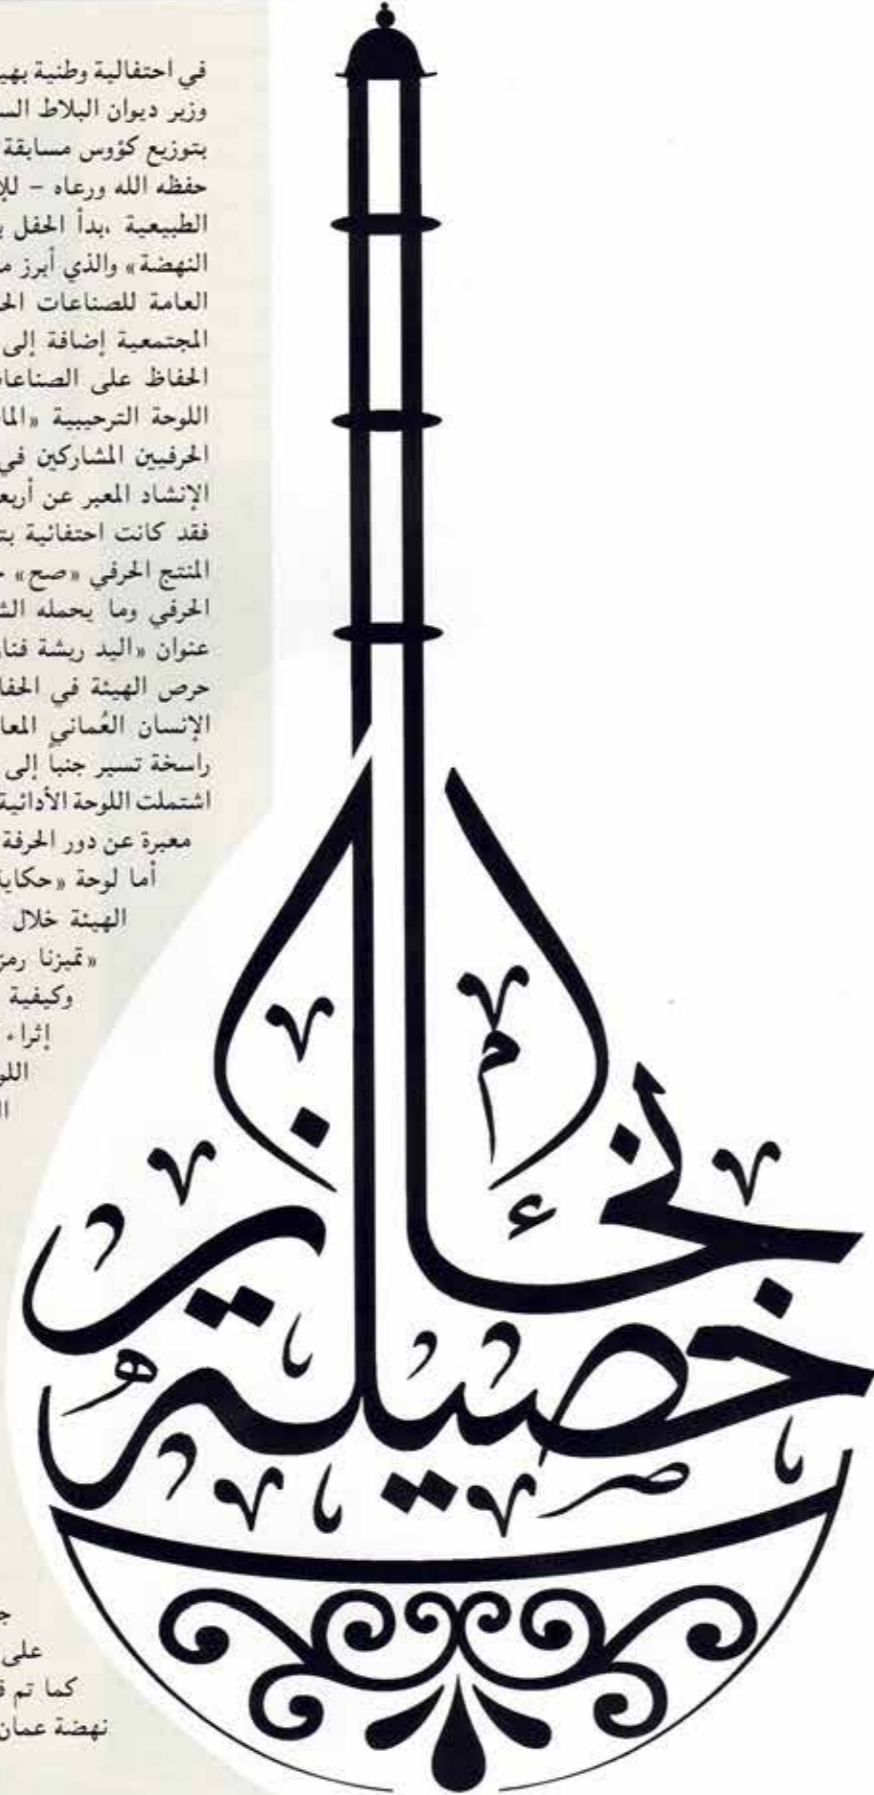 في احتفالية وطنية بهيـ
وزير ديوان البلاط السـ
بتوزيع كؤوس مسابقة
حفظه الله ورعاه – للإ
الطبيعية ،بدأ الحفل بـ
النهضة» والذي أبرز مـ
العامة للصناعات الحـ
المجتمعية إضافة إلى
الحفاظ على الصناعا
اللوحة الترحيبية «الما
الحرفيين المشاركين في
الإنشاد المعبر عن أربعـ
فقد كانت احتفائية بتـ
المنتج الحرفي «صح» حـ
الحرفي وما يحمله الشـ
عنوان «اليد ريشة فنا
حرص الهيئة في الحفا
الإنسان العُماني المعا
راسخة تسير جنباً إلى
اشتملت اللوحة الأدائية
معبرة عن دور الحرفة
أما لوحة «حكاية
الهيئة خلال
«تميزنا رمز
وكيفية
إثراء
اللو
ا
جـ
على
كما تم قـ
نهضة عمان
خصيلته